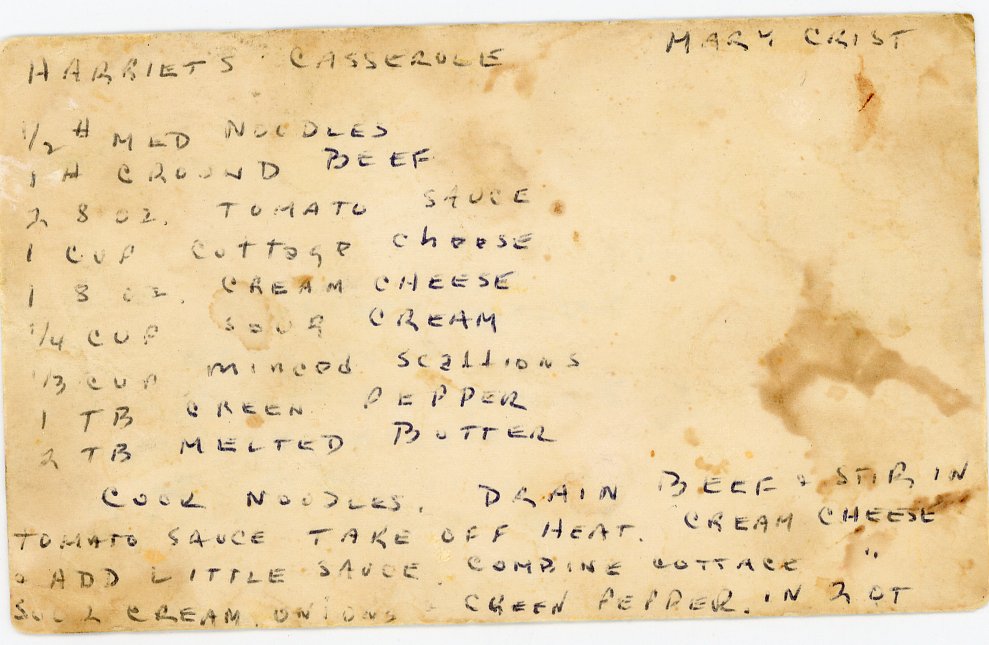 HARRIETS CASSEROLE MARY CRIST
1/2 # MED NOODLES
1 # GROUND BEEF
2 8 OZ. TOMATO SAUCE
1 CUP Cottage cheese
1 8 OZ. CREAM CHEESE
1/4 CUP SOUR CREAM
1/3 CUP minced Scallions
1 TB GREEN PEPPER
2 TB MELTED BUTTER
COOK NOODLES. DRAIN BEEF & STIR IN
TOMATO SAUCE TAKE OFF HEAT. CREAM CHEESE
& ADD LITTLE SAUCE. COMBINE COTTAGE "
CREAM. ONIONS & GREEN PEPPER. IN 2 QT